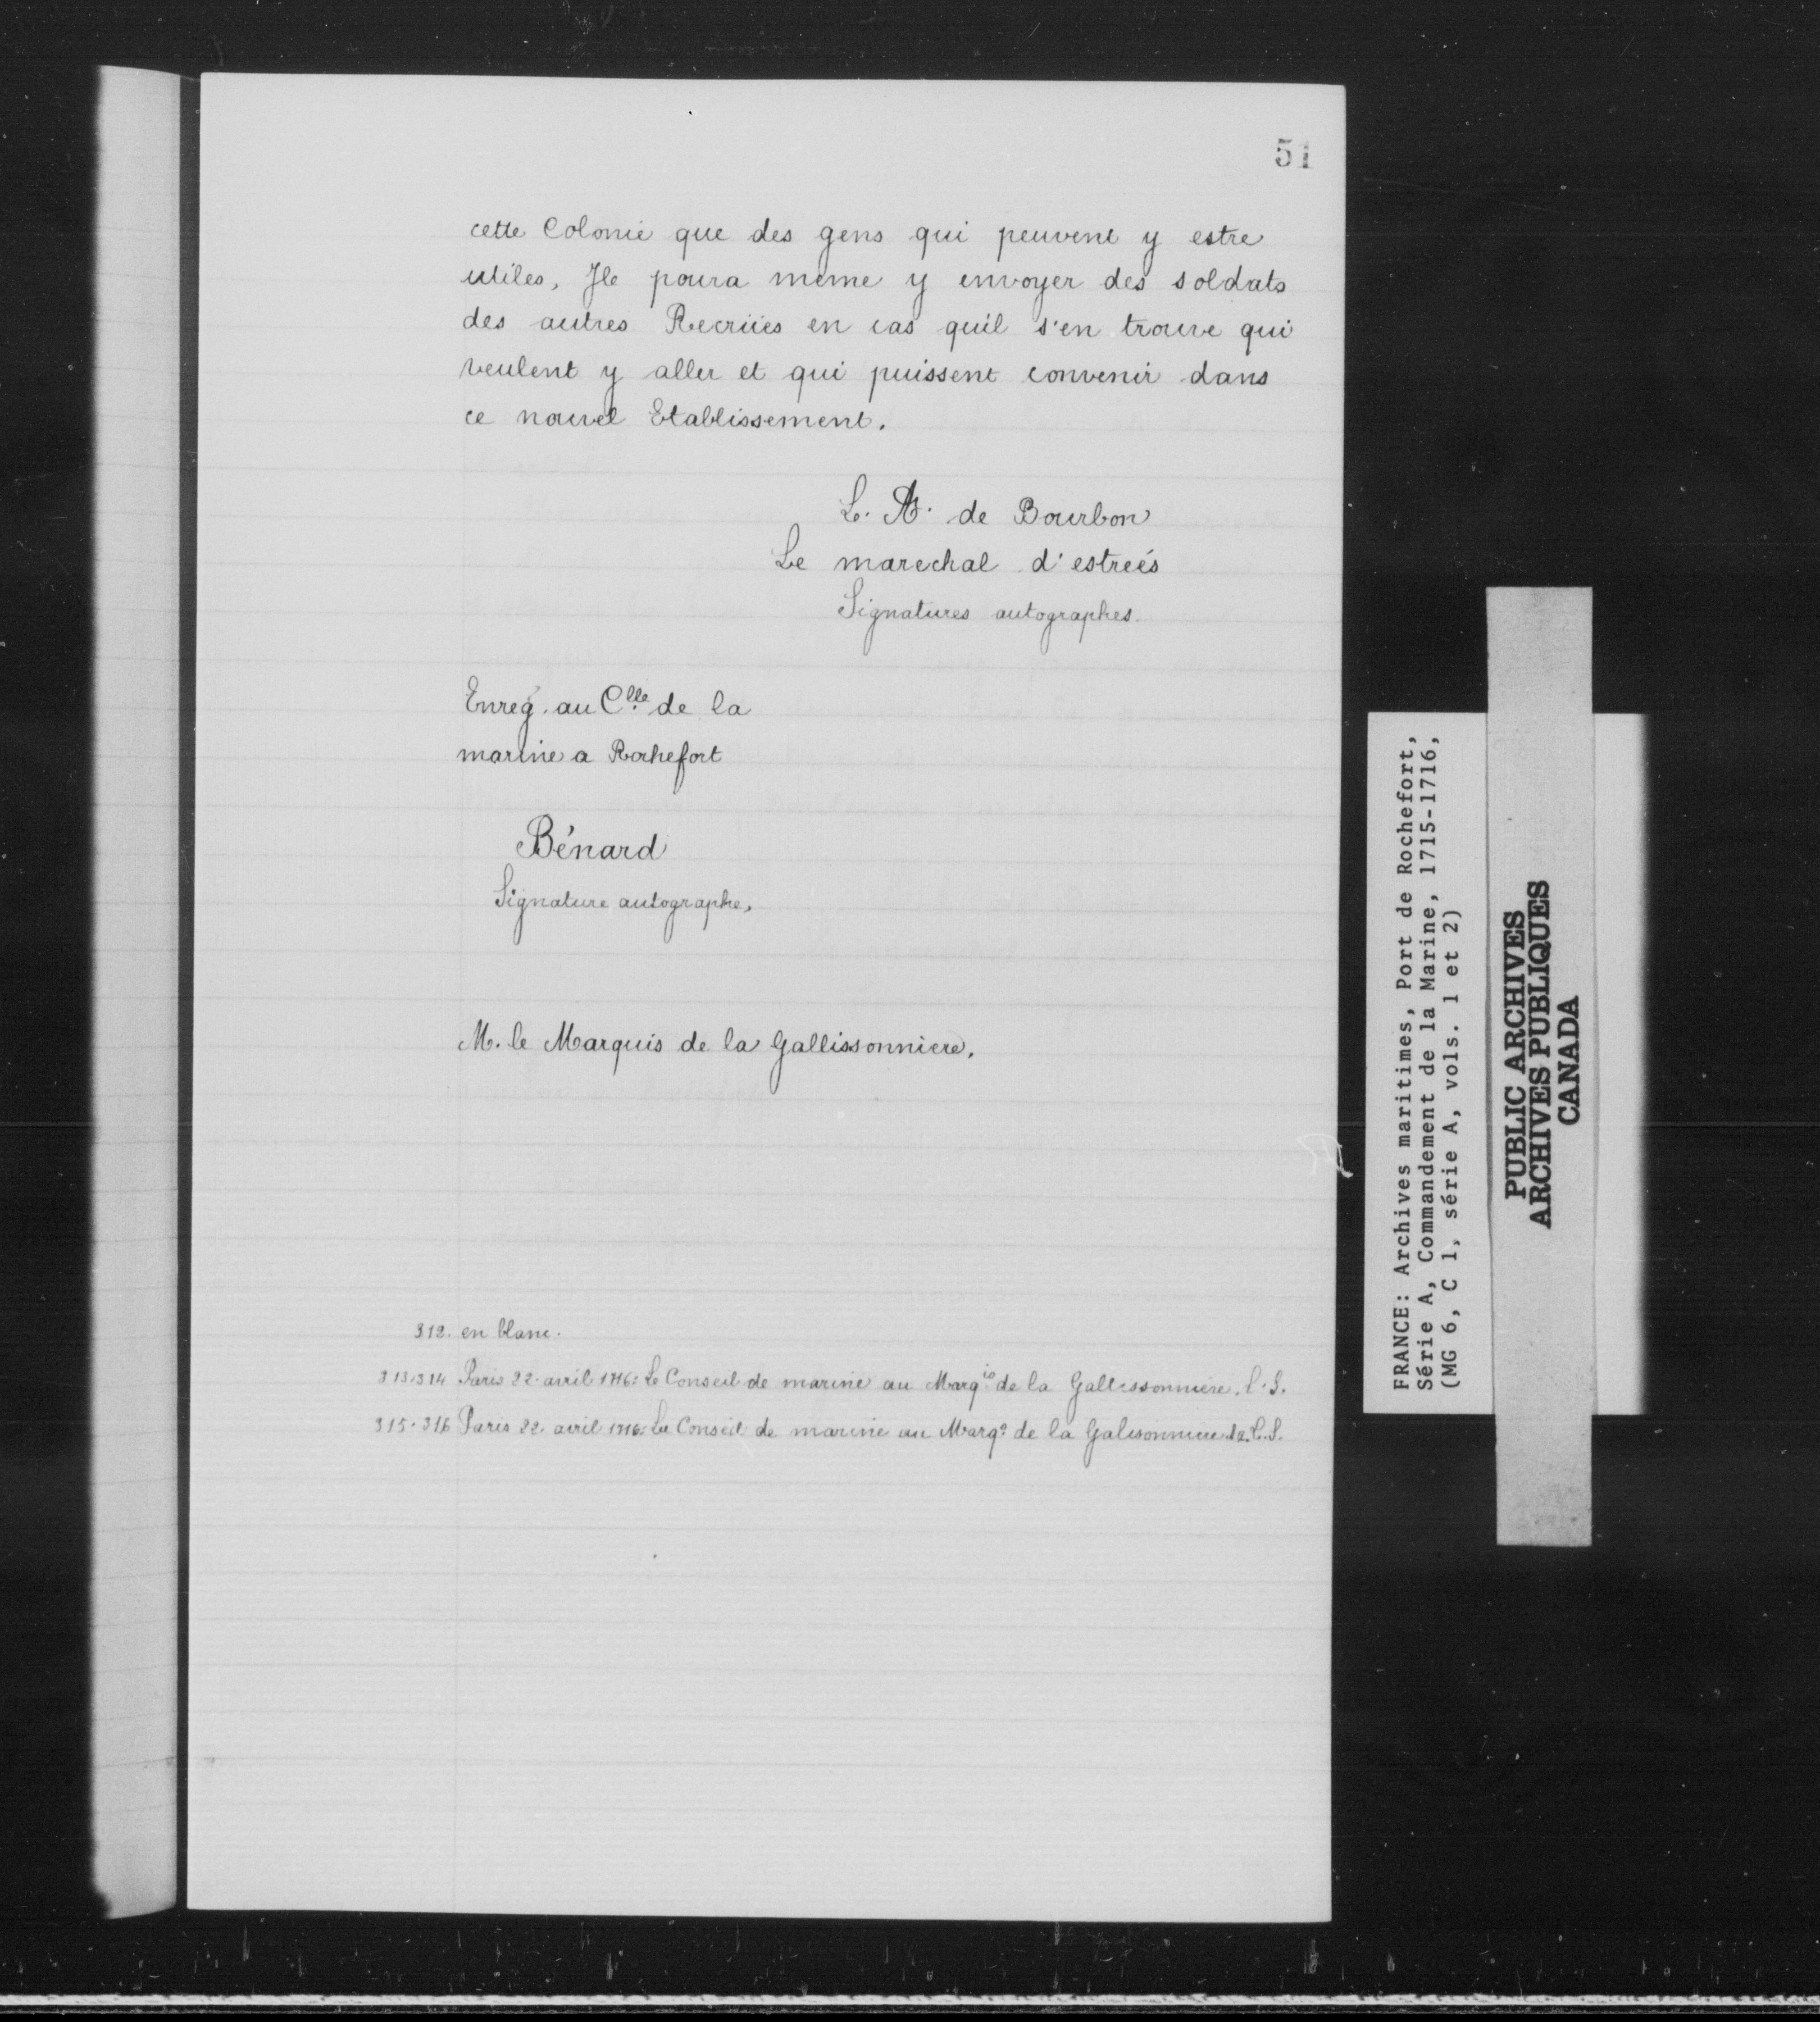 51
cette Colonie que des gens qui peuvent y estre
utiles, Jle poura meme y envoyer des soldats
des autres Recriies en cas quil s'en trouve qui
veulent y aller et qui puissent convenir dans
ce nouvel Etablissement.
L. A. de Bourbon
Le marechal d'estreés
Signatures autographes.
Enreg. au Clle de la
marine a Rochefort
Bénard
Signature autographe,
M. le Marquis de la Gallissonniere.
312. en blanc.
313.314 Paris 22. avril 1716: Le Conseil de marine au Marqis de la Gallissonnière. L.S.
315.316 Paris 22. avril 1716: Le Conseil de marine au Marqs de la Galissonniere L.S.
FRANCE: Archives maritimes, Port de Rochefort,
Série A, Commandement de la Marine, 1715-1716,
(MG 6, C 1, série A, vols. 1 et 2)
PUBLIC ARCHIVES
ARCHIVES PUBLIQUES
CANADA